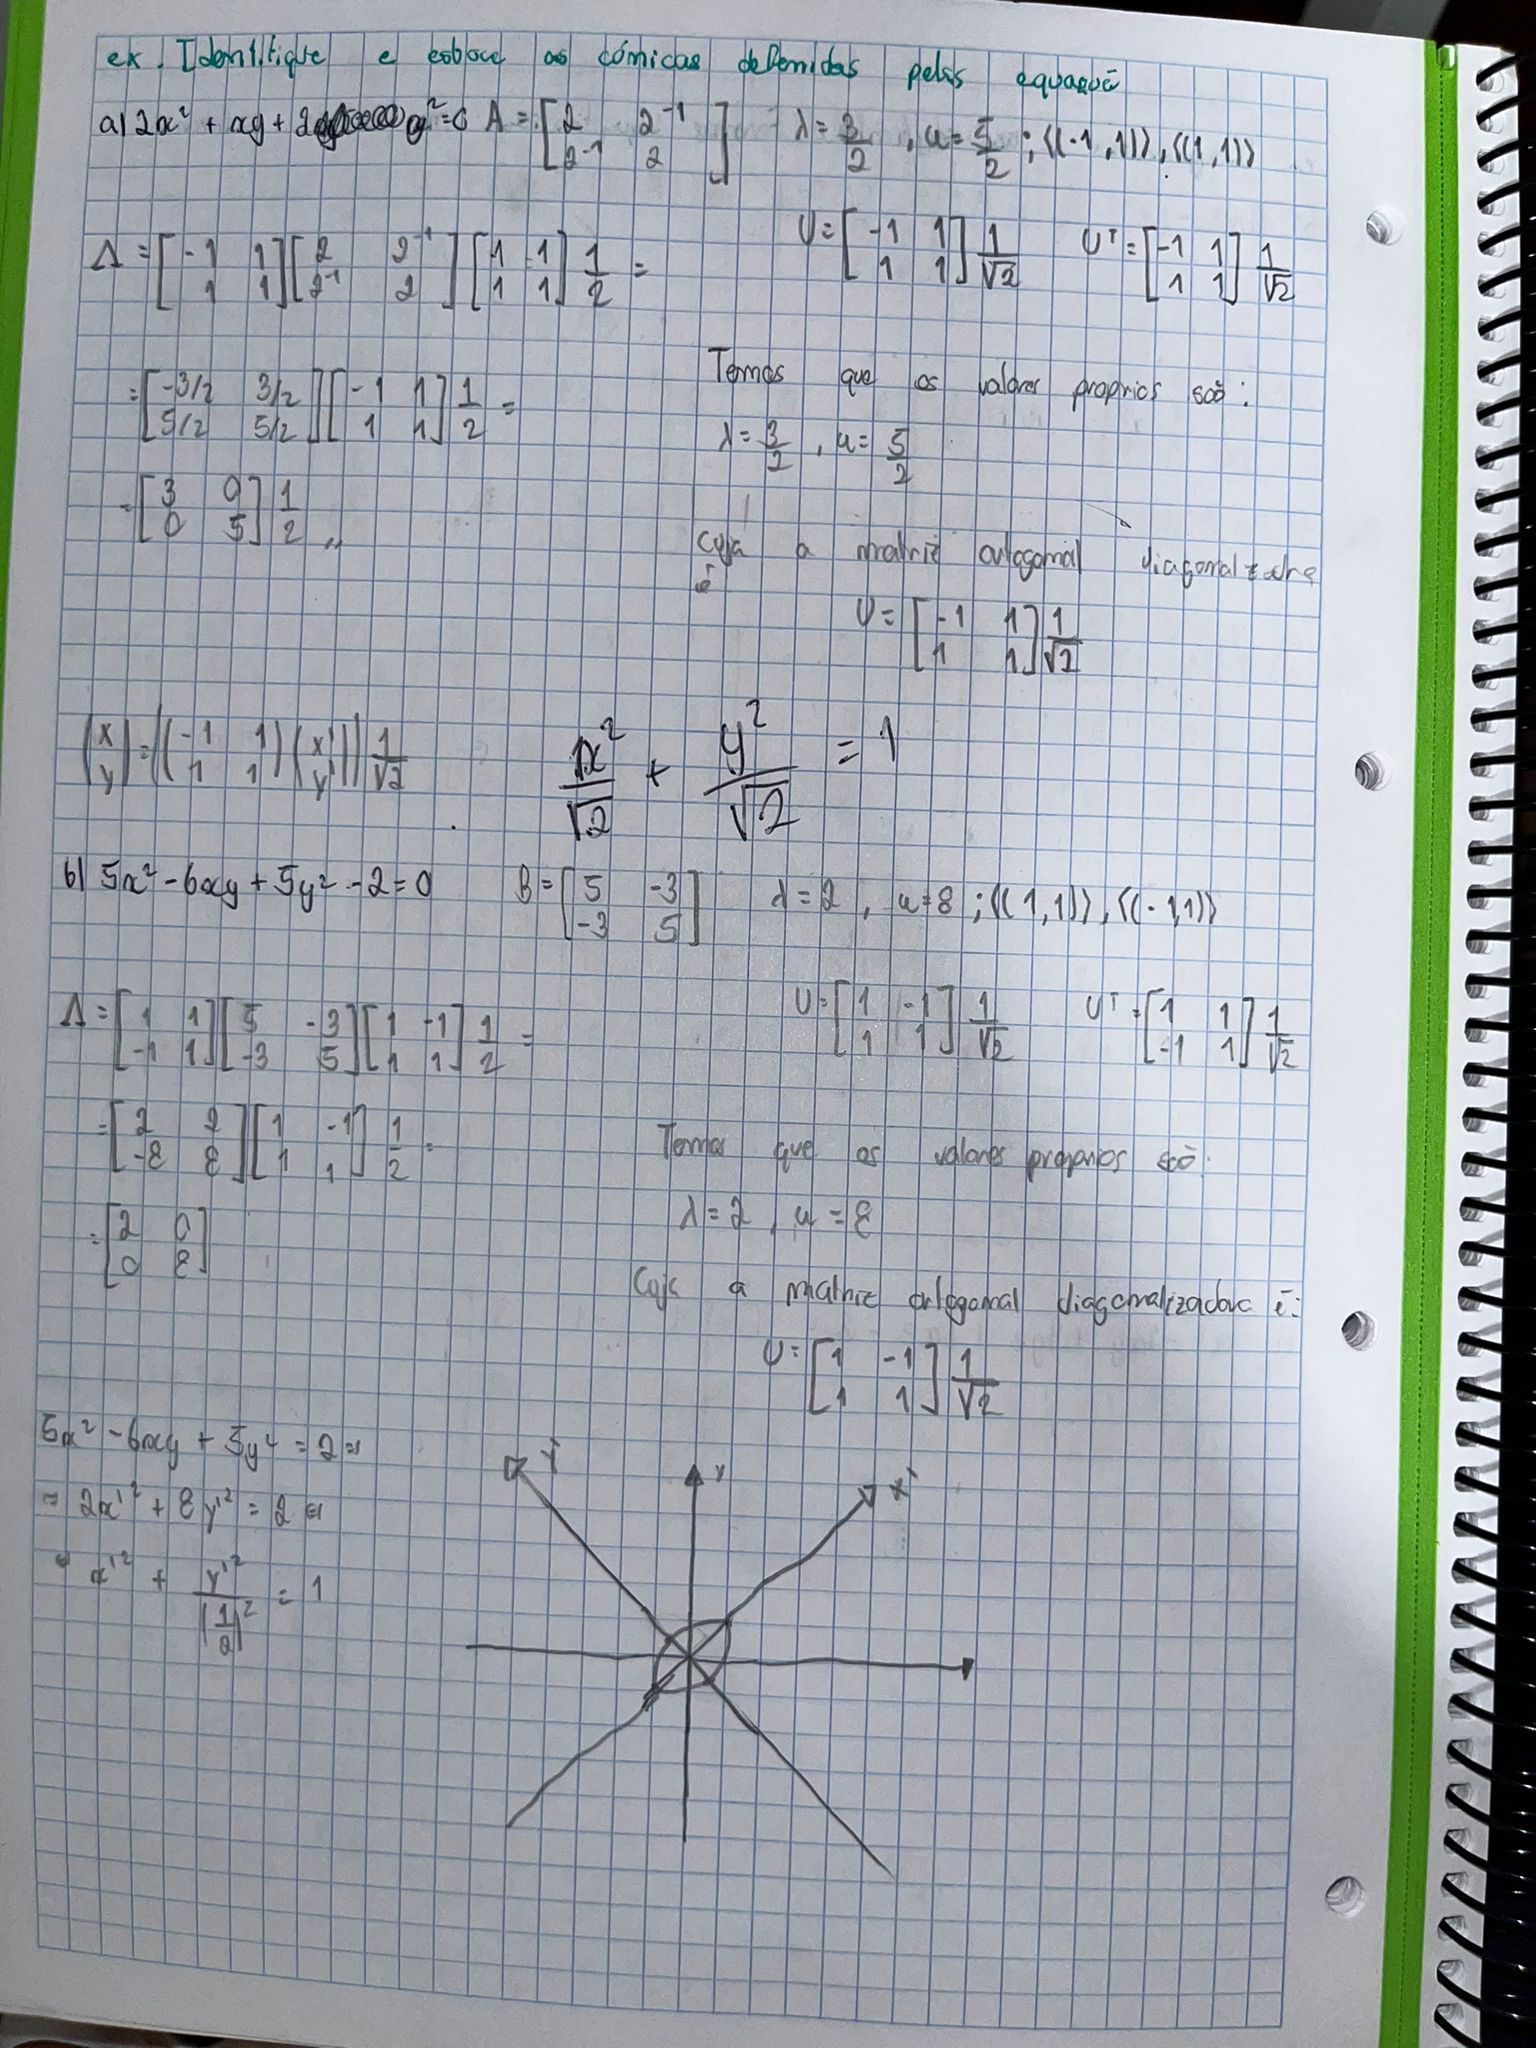 ex. Identifique e esboce as cónicas definidas pelas equaçoẽ
a) 2x² + xy + 2 y² = 6 A = [2 2⁻¹; 2⁻¹ 2] λ = 3/2 , u = 5/2 ; ⟨(-1,1)⟩, ⟨(1,1)⟩
U = [-1 1; 1 1] 1/√2 Uᵀ = [-1 1; 1 1] 1/√2
Λ = [-1 1; 1 1] [2 2⁻¹; 2⁻¹ 2] [-1 1; 1 1] 1/2 =
= [-3/2 3/2; 5/2 5/2] [-1 1; 1 1] 1/2 =
= [3 0; 0 5] 1/2 //
Temos que os valores proprios são:
λ = 3/2 , u = 5/2
Cuja a matriz ortogonal diagonalizadora
é
U = [-1 1; 1 1] 1/√2
(x; y) = ((-1 1; 1 1) (x'; y')) 1/√2
x²/√2 + y²/√2 = 1
b) 5x² - 6xy + 5y² - 2 = 0 B = [5 -3; -3 5] λ = 2 , u = 8 ; ⟨(1,1)⟩, ⟨(-1,1)⟩
U = [1 -1; 1 1] 1/√2 Uᵀ = [1 1; -1 1] 1/√2
Λ = [1 1; -1 1] [5 -3; -3 5] [1 -1; 1 1] 1/2 =
= [2 2; -8 8] [1 -1; 1 1] 1/2 =
= [2 0; 0 8]
Temos que os valores proprios são:
λ = 2 , u = 8
Cuja a matriz ortogonal diagonalizadora é:
U = [1 -1; 1 1] 1/√2
5x² - 6xy + 5y² = 2 ⇔
⇔ 2x'² + 8y'² = 2 ⇔
⇔ x'² + y'²/(1/2)² = 1
y' y x'